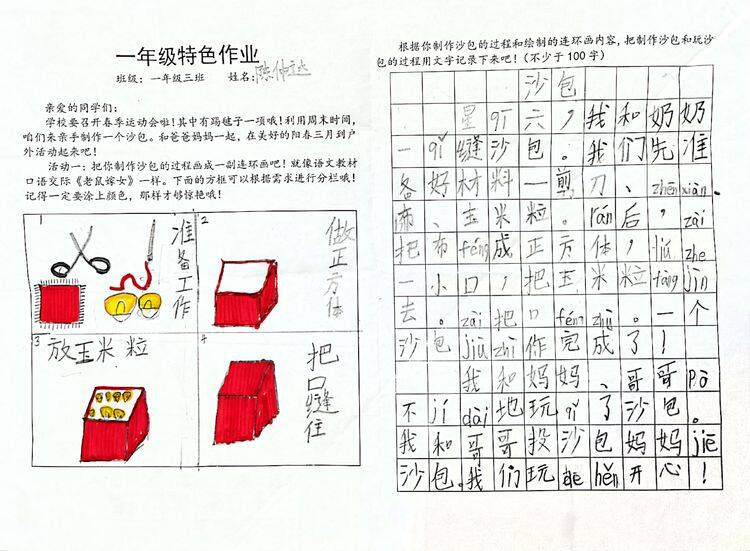 一年级特色作业
班级：一年级三班 姓名：陈仲达
亲爱的同学们：
学校要召开春季运动会啦！其中有踢毽子一项哦！利用周末时间，
咱们来亲手制作一个沙包。和爸爸妈妈一起，在美好的阳春三月到户
外活动起来吧！
活动一：把你制作沙包的过程画成一副连环画吧！就像语文教材
口语交际《老鼠嫁女》一样。下面的方框可以根据需求进行分栏哦！
记得一定要涂上颜色，那样才够惊艳哦！
1
准备工作
2
做正方体
3 放玉米粒
4
把口缝住
根据你制作沙包的过程和绘制的连环画内容，把制作沙包和玩沙
包的过程用文字记录下来吧！（不少于 100 字）
沙包
星qī六，我和奶奶
一qǐ缝沙包。我们先准
备好材料—剪刀、zhēn xiàn、
布、玉米粒。rán后，zài
把布féng成正方体，liú zhe
一小口，把玉米粒fàng jìn
去。zài把口féng zhù。一个
沙包jiù zhì作完成了！
我和妈妈、哥哥pò
不jí dài地玩qǐ了沙包。
我和哥哥投沙包妈妈jiē
沙包。我们玩 hěn开心！